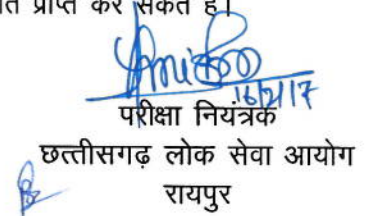 प्राप्त कर सकते हैं।
16/2/17
परीक्षा नियंत्रक
छत्तीसगढ़ लोक सेवा आयोग
रायपुर